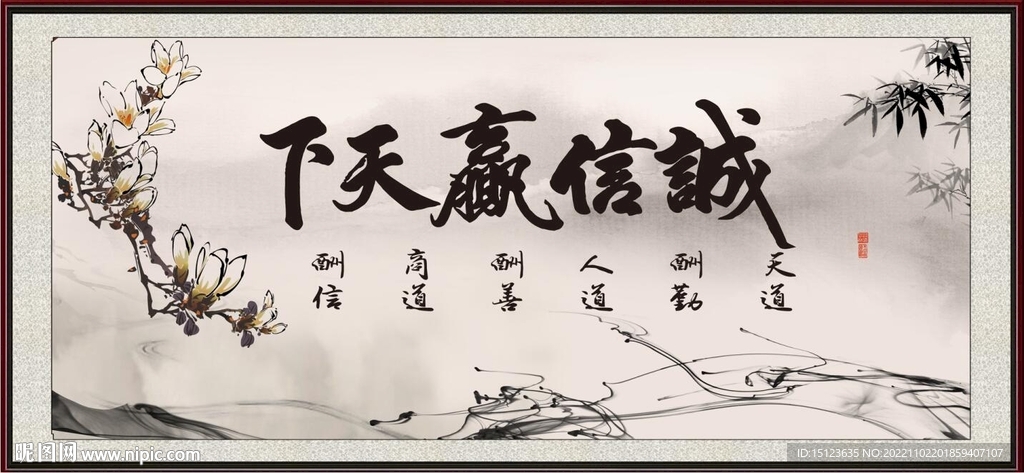 誠信贏天下
天道
酬勤
人道
酬善
商道
酬信
昵图网 www.nipic.com
ID:15123635 NO:20221102201859407107